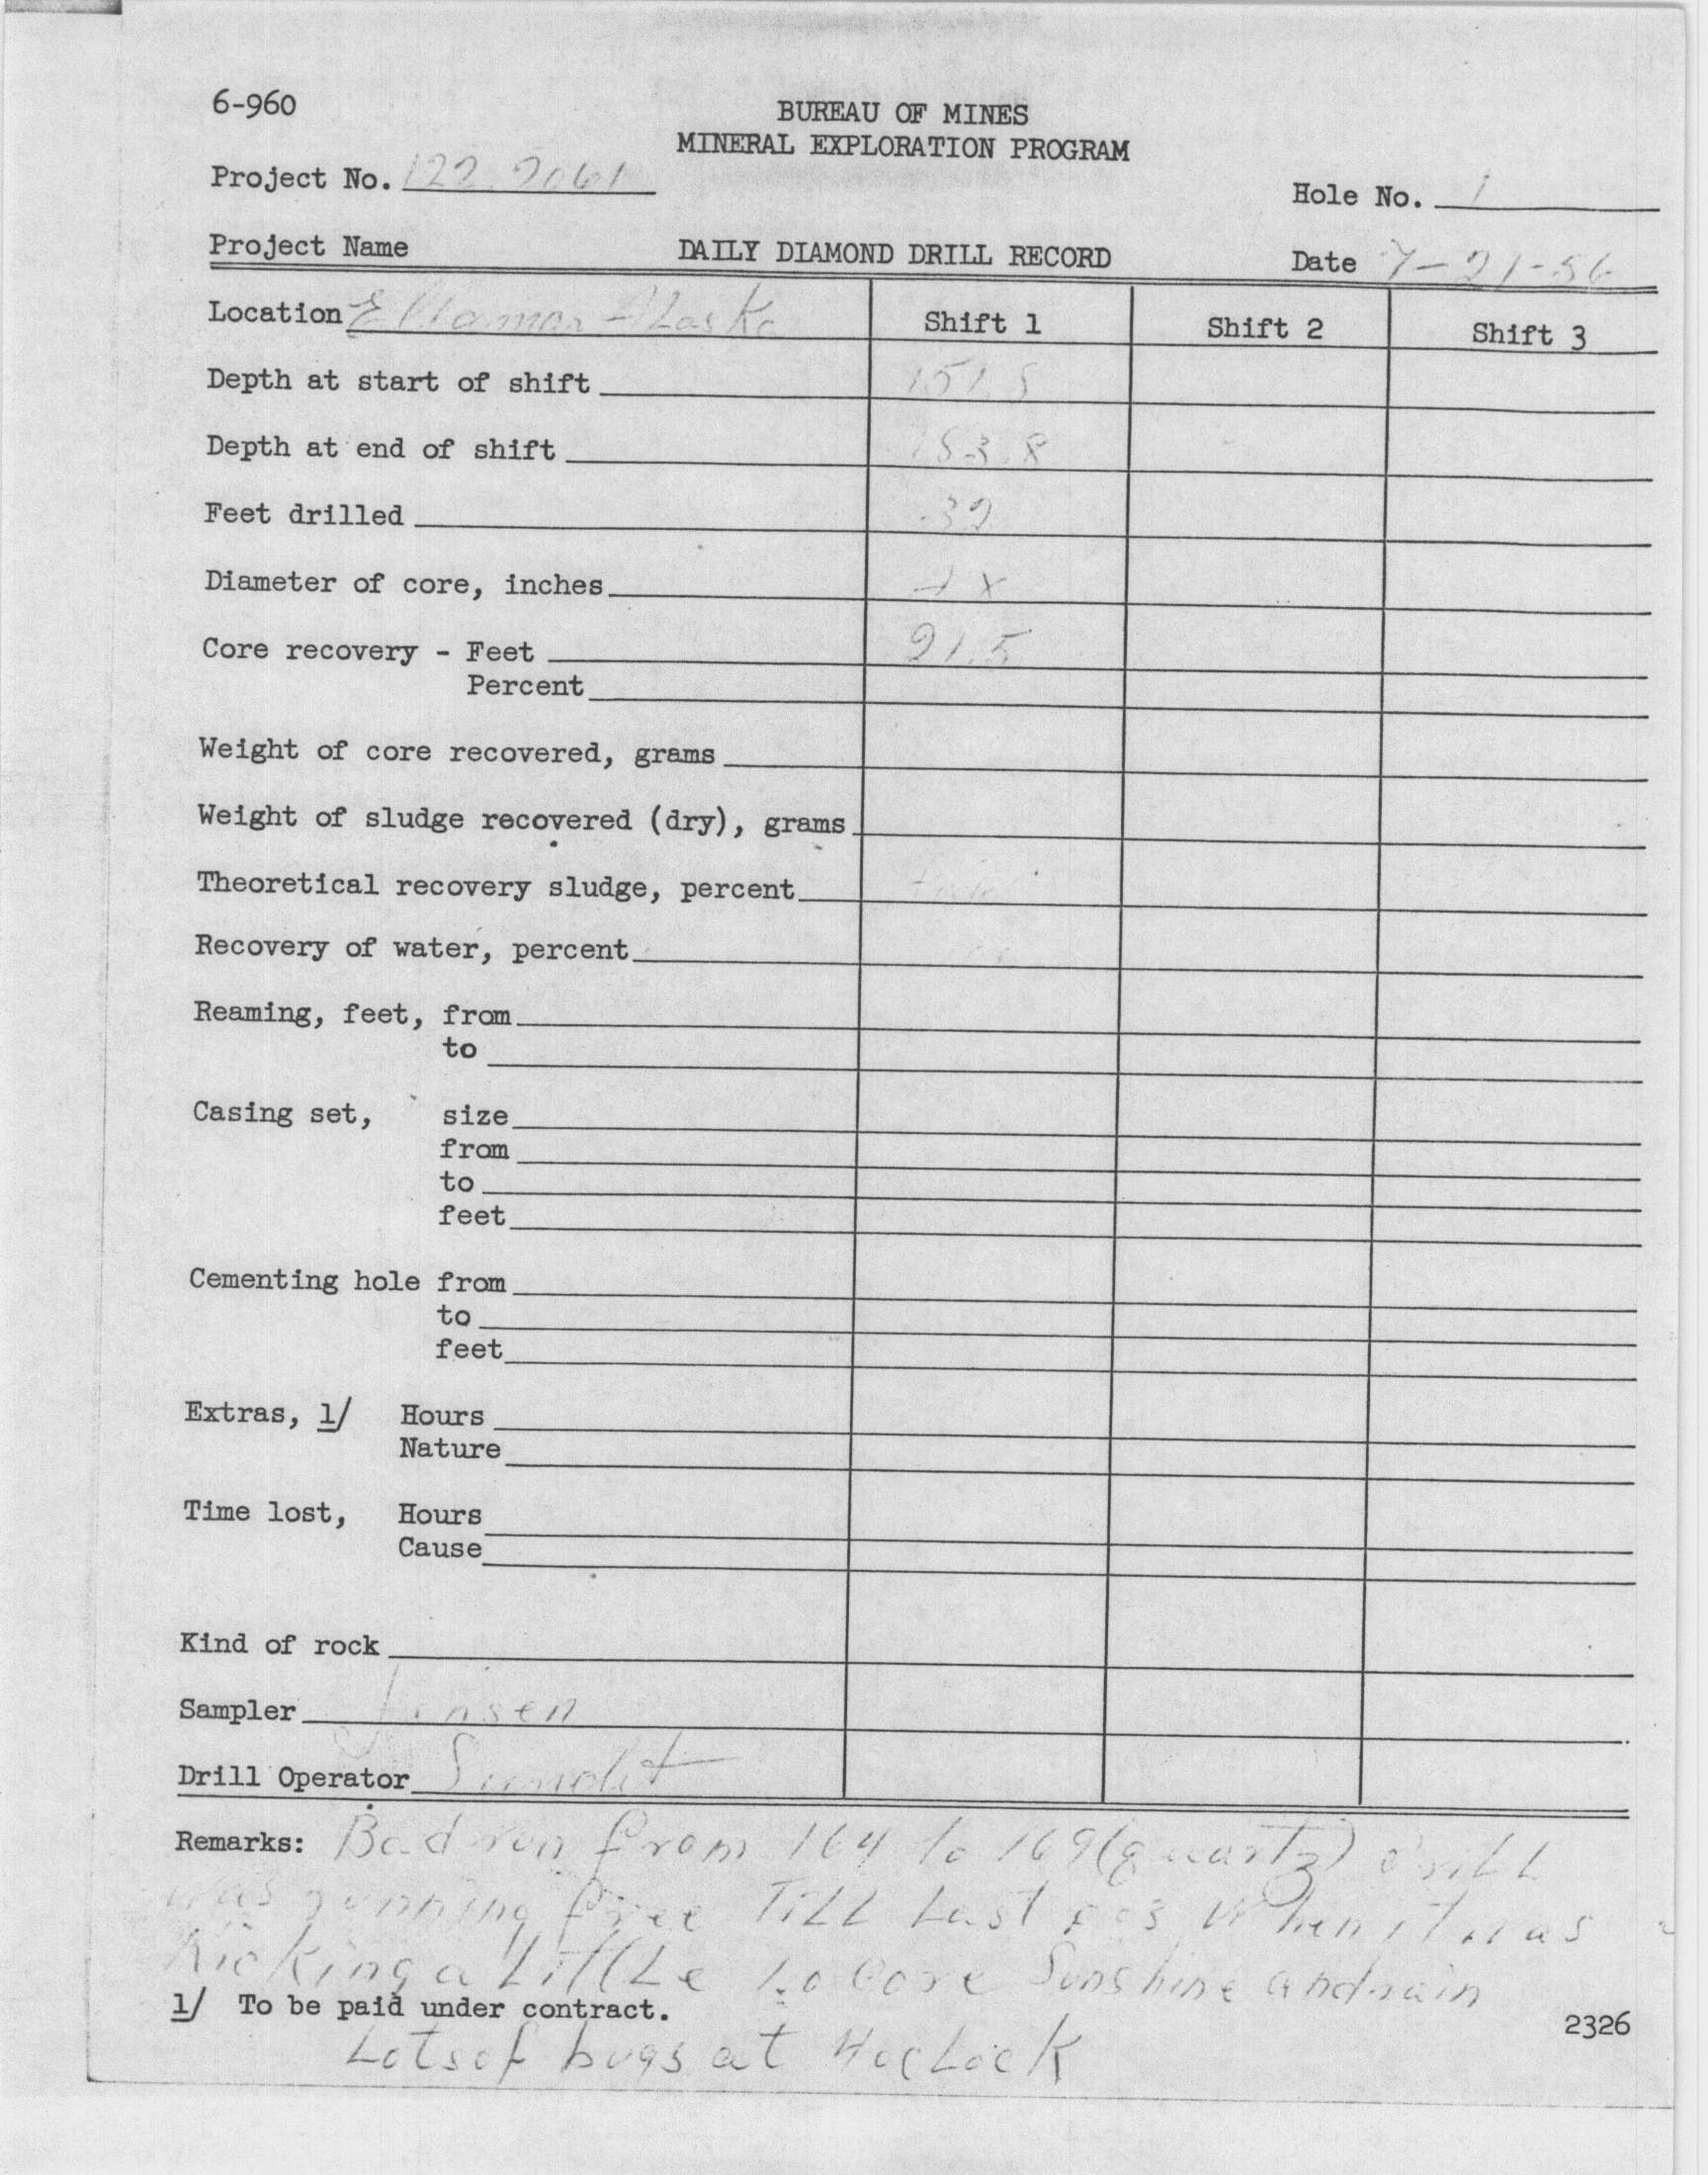 6-960
BUREAU OF MINES
MINERAL EXPLORATION PROGRAM
Project No. 122.2061
Hole No. 1
Project Name DAILY DIAMOND DRILL RECORD Date 7-21-56
Location Ellamar Alaska Shift 1 Shift 2 Shift 3
Depth at start of shift 151.8
Depth at end of shift 183.8
Feet drilled 32
Diameter of core, inches AX
Core recovery - Feet 21.5
Percent
Weight of core recovered, grams
Weight of sludge recovered (dry), grams
Theoretical recovery sludge, percent
Recovery of water, percent
Reaming, feet, from
to
Casing set, size
from
to
feet
Cementing hole from
to
feet
Extras, 1/ Hours
Nature
Time lost, Hours
Cause
Kind of rock
Sampler Jensen
Drill Operator
Remarks: Bad run from 164 to 169 (quartz) drill
was running free Till Last When it was
Kicking a Little Core Sunshine and rain
1/ To be paid under contract.
2326
Lots of bugs at